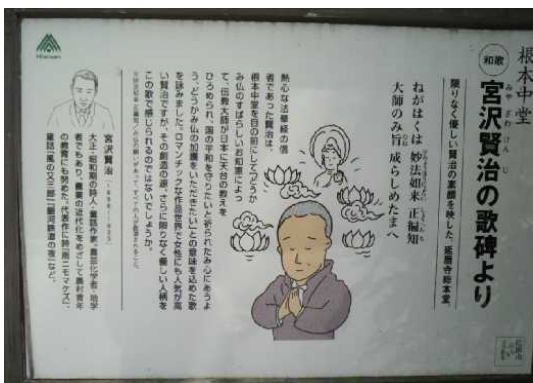 根本中堂
和歌
宮沢賢治の歌碑より
みやざわけんじ
限りなく優しい賢治の素顔を映した、延暦寺総本堂。
ねがはくは 妙法如来 正徧知
大師のみ旨 成らしめたまへ
熱心な法華経の信
者であった賢治は、
根本中堂を目の前にして、「どうか
み仏のすばらしいお知恵によっ
て、伝教大師が日本に天台の教えを
ひろめられ、国の平和を守りたいと祈られたみ心にあうよ
う、どうかみ仏の加護をいただきたい」との意味を込めた歌
を詠みました。ロマンチックな作品世界で女性にも人気が高
い賢治ですが、その創造の源、さらに限りなく優しい人柄を
この歌で感じられるのではないでしょうか。
宮沢賢治
大正・昭和期の詩人・童話作家。農芸化学者・地学
者でもあり、農業の近代化をめざして農村青年
の教育にも努めた。代表作に詩「雨ニモマケズ」、
童話「風の又三郎」「銀河鉄道の夜」など。